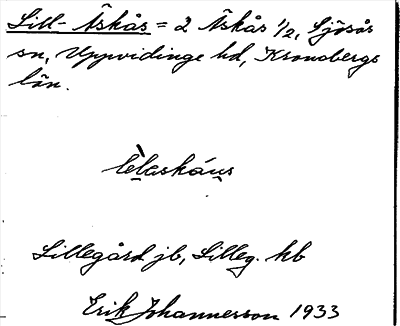 Lill-Äskås = 2 Äskås 1/2, Sjösås
sn, Uppvidinge hd, Kronobergs
län.
Lillegård jb, Lilleg. kb
Erik Johannesson 1933